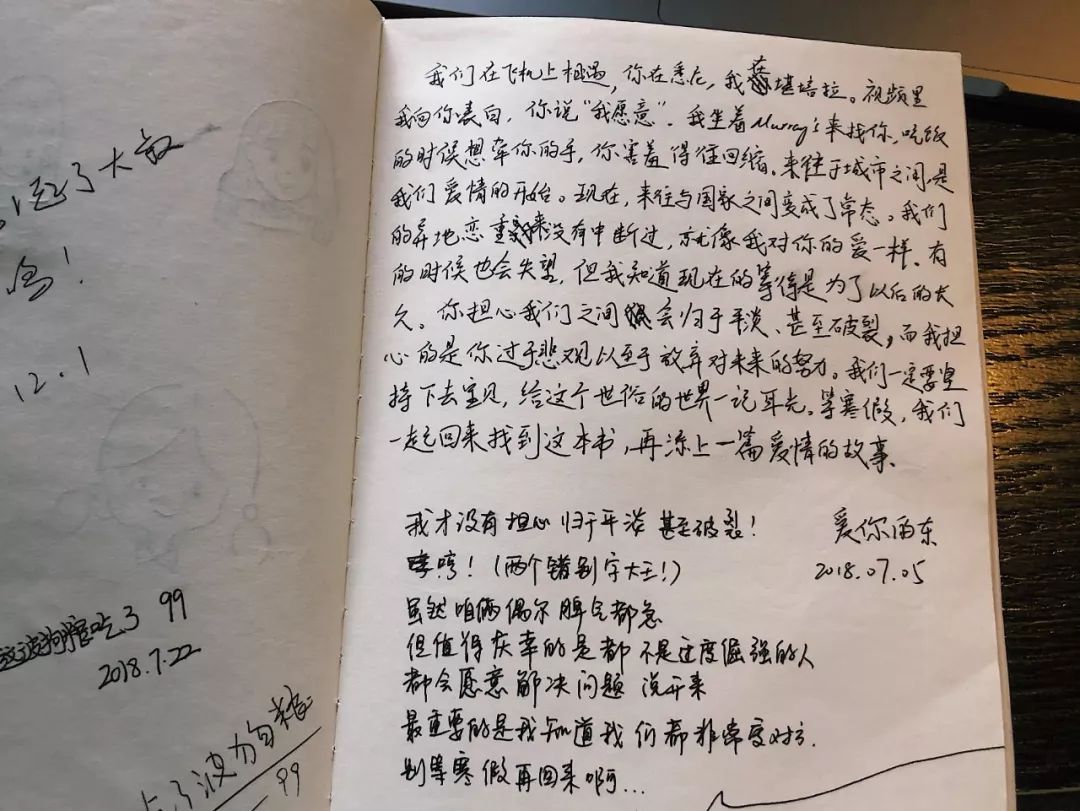 我们在飞机上相遇，你在悉尼，我在堪培拉。视频里
我向你表白，你说“我愿意”。我坐着Murray's来找你，吃饭
的时候想牵你的手，你害羞得往回缩。来往于城市之间是
我们爱情的开始。现在，来往与国家之间变成了常态。我们
的异地恋重来没有中断过，就像我对你的爱一样。有
的时候也会失望，但我知道现在的等待是为了以后的长
久。你担心我们之间会归于平淡、甚至破裂，而我担
心的是你过于悲观以至于放弃对未来的努力。我们一定要坚
持下去宝贝，给这个世俗的世界一记耳光。等寒假，我们
一起回来找到这本书，再添上一篇爱情的故事。
爱你的东
2018.07.05
我才没有担心归于平淡甚至破裂！
哼！（两个错别字大王！）
虽然咱俩偶尔脾气都急
但值得庆幸的是都不是过度倔强的人
都会愿意解决问题 说开来
最重要的是我知道我们都非常爱对方.
别等寒假再回来啊...
了大
！
12.1
吃了 99
2018.7.22
了波力自糕
99